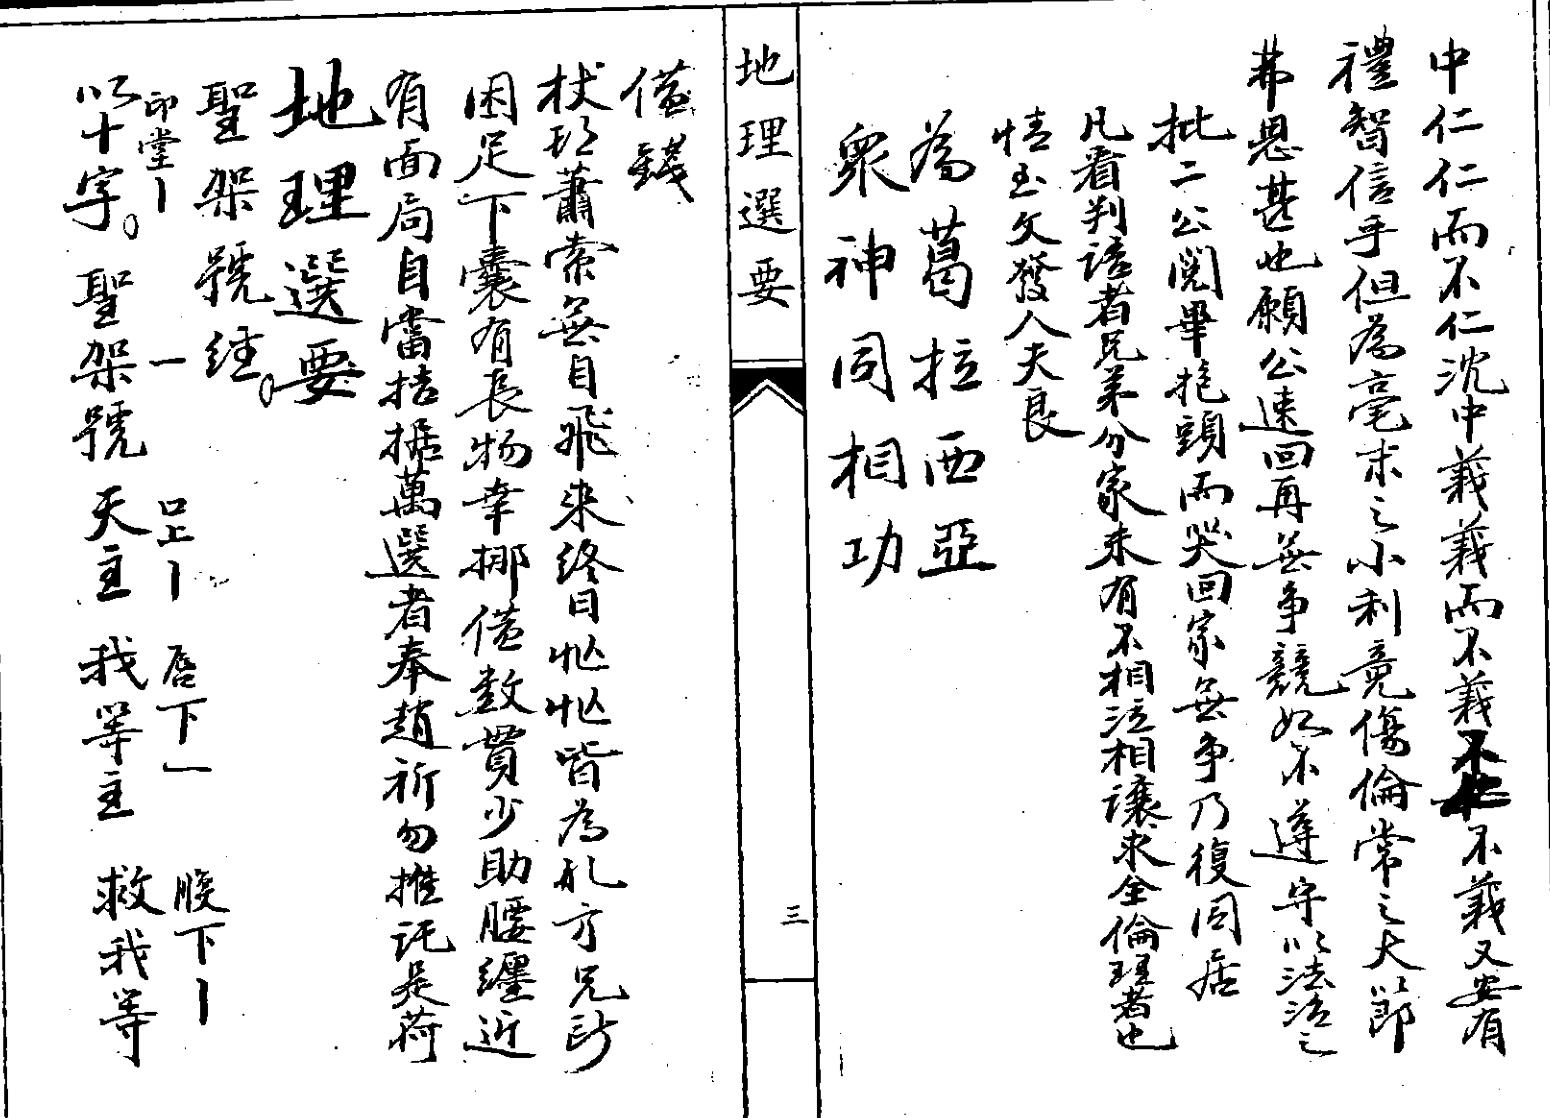 中仁仁而不仁沈中義義而不義不義又安有
禮智信乎但為毫末之小利竟傷倫常之大節
弗思甚也願公速回再無争競如不遵守以法治之
批二公閱畢抱頭而哭回家無争乃復同居
凡看判語者兄弟分家未有不相泣相讓求全倫理者也
情生文發人天良
為葛拉西亞
眾神同相功
地理選要
三
借錢
杖頭蕭索無自飛來終日忙忙皆為孔方兄所
困足下囊有長物幸挪借数貫少助腰纏近
有面局自當拮据萬選者奉趙祈勿推託是荷
地理選要
聖架號經。
印堂丨 一 口上丨 唇下一 胸下丨
以十字。聖架號 天主 我等主 救我等